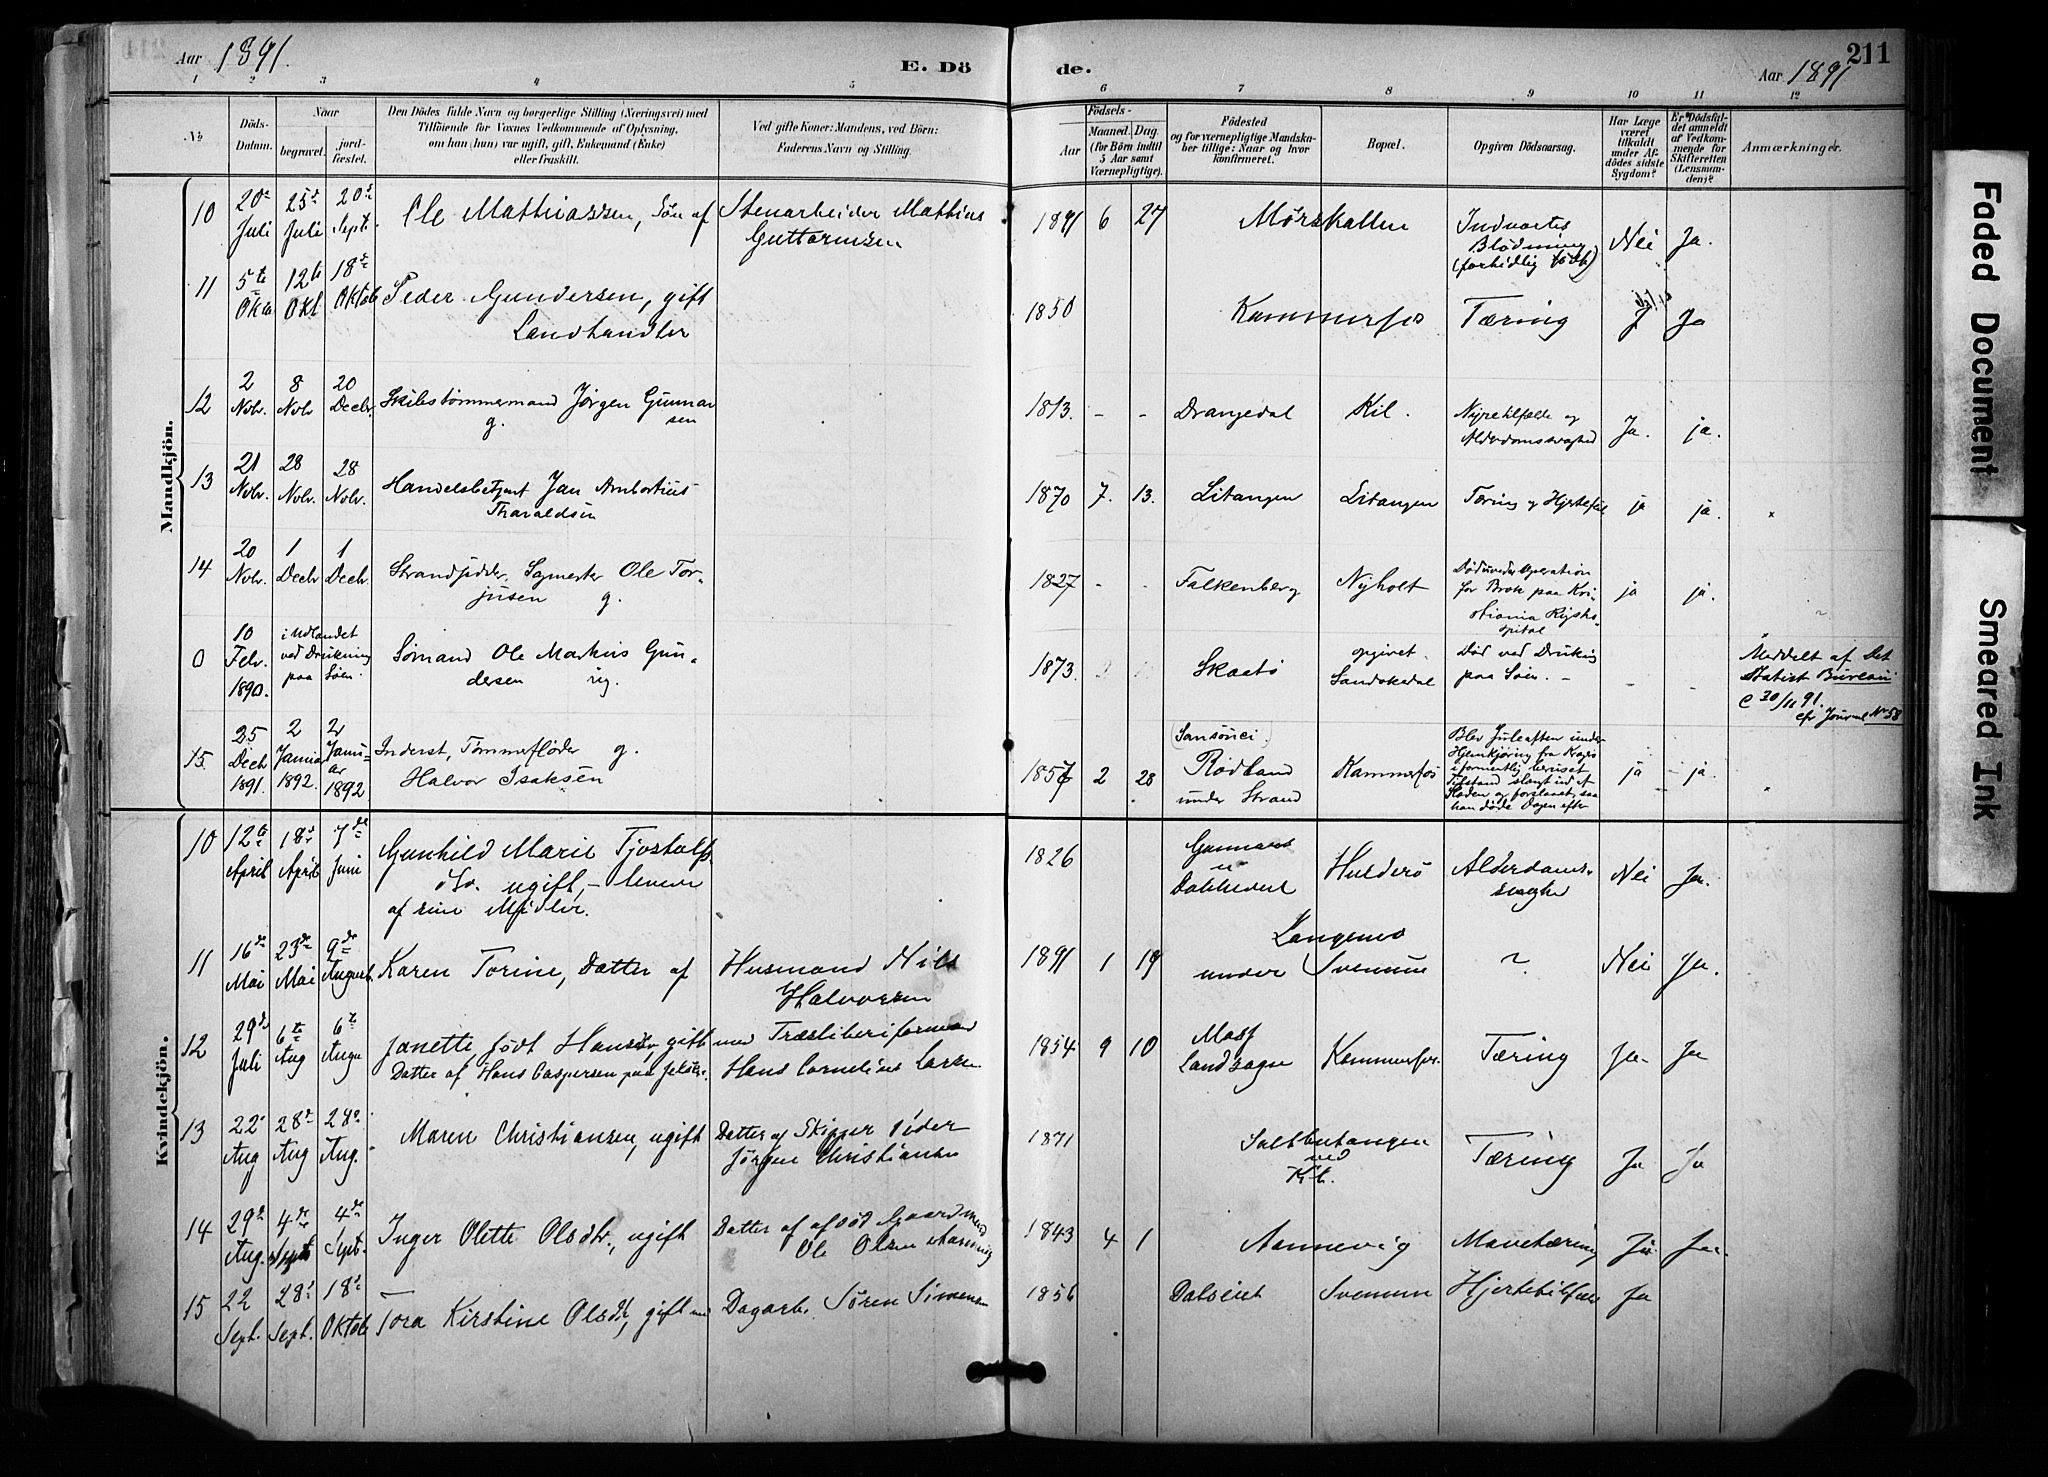 Aar 1891. E. Dö de. Aar 1891 211
1 2 3 4 5 6 7 8 9 10 11 12
No
Döds-Datum.
Naar
begravet.
jord-fæstet.
Den Dödes fulde Navn og borgerlige Stilling (Næringsvei) med
Tilföiende for Voxnes Vedkommende af Oplysning,
om han (hun) var ugift, gift, Enkemand (Enke)
eller fraskilt.
Ved gifte Koner: Mandens, ved Börn:
Faderens Navn og Stilling.
Födsels-
Aar
Maaned. Dag.
(for Börn indtil
5 Aar samt
Værnepligtige).
Födested
og for værnepligtige Mandska-
ber tillige: Naar og hvor
konfirmeret.
Bopæl.
Opgiven Dödsaarsag.
Har Læge
været
tilkaldt
under Af-
dödes sidste
Sygdom?
Er Dödsfal-
det anmeldt
af Vedkom-
mende for
Skifteretten
(Lensman-
den)?
Anmærkninger.
Mandkjön.
10 20de Juli 25de Juli 20de Sept. Ole Mathiassen, Søn af Stenarbeider Mathias
Guttormsen 1891 6 27 Mørskallen Indvortes
Blødning
(forhidlig født) Nei Ja.
11 5te Okto 12te Okt 18de Oktob Peder Gundersen, gift
Landhandler 1850 Kammerfos Tæring J Ja
12 2 Novbr. 8 Novbr 20 Decbr. Skibstømmermand Jørgen Gunnar
g. sen 1813. - - Drangedal Kil. Nyretilfælde og
Alderdomssvaghed Ja. ja.
13 21 Novbr. 28 Novbr. 28 Novbr. Handelsbetjent Jan Ambortius
Tharaldsen 1870 7. 13. Litangen Litangen Tæring og Hjertefeil ja ja. "
14 20 Novbr. 1 Decbr 1 Decbr. Strandsidder, Sagmester Ole Tor-
jusen g. 1827 - - Falkenberg Nyholt Død under Operation
for Brok paa Kri-
stiania Rigsho-
spital ja ja. "
0 10 Febr. 1890. i Udlandet
ved Drukning
paa Søen. Sømand Ole Markus Gun-
dersen ug. 1873. Skaatø opgivet
Sandøkedal Død ved Drukng
paa Søen. - - - Meddelt af Det
Statist Bureau
C 30/11 91.
cfr Journal No 58
15. 25 Decbr 1891. 2 Januar 1892. 2 Janu-
ar 1892 Inderst, Tømmerfløder g.
Halvor Isaksen 1857 2 28 (Sansouci.)
Rødland
under Strand Kammerfos Blev Juleaften under
Hjemkjøring fra Kragø
i formentlig beruset
Tilstand slængt ud af
Slæden og forslaaet, saa
han døde Dagen efter ja ja. "
Kvindekjön.
10 12te April 18de April 7de Juni Gunhild Marie Tjostolfs
dtr. ugift, - levede
af sine Midler. 1826 Gunnars
u
Dobbedal Hulderø Alderdoms-
svaghe Nei Ja.
11 16de Mai 23de Mai 9de August. Karen Torine, Datter af Husmand Nils
Halvorsen 1891 1 19 Langemo
under Svenum ? Nei Ja.
12 29de Juli 6te Aug 6te Augu Janette født Hansdtr, gift med Træsliberiformand
Datter af Hans Caspersen paa Hans Cornelius Larsen 1854 9 10 Mosf
Landsogn Kammerfos. Tæring Ja- Ja
13 22de Aug 28de Aug 28de Aug. Maren Christiansen, ugift Datter af Skipper Peder
Jørgen Christiansen 1871 Saltbutangen
ved
Kil. Tæring Ja Ja
14 29de Aug. 4de Sept 4de Sept. Inger Olette Olsdtr, ugift Datter af afdød Gaardmand
Ole Olsen Aasnevig 1843 4 1 Aannevig Mavetæring Ja Ja.
15 22 Sept. 28de Sept. 18de Oktob Tora Kirstine Olsdtr, gift m. Dagarb. Søren Simonsen 1856 Dalseiet Svenum Hjertetilfælde Ja
Faded Document
Smeared Ink